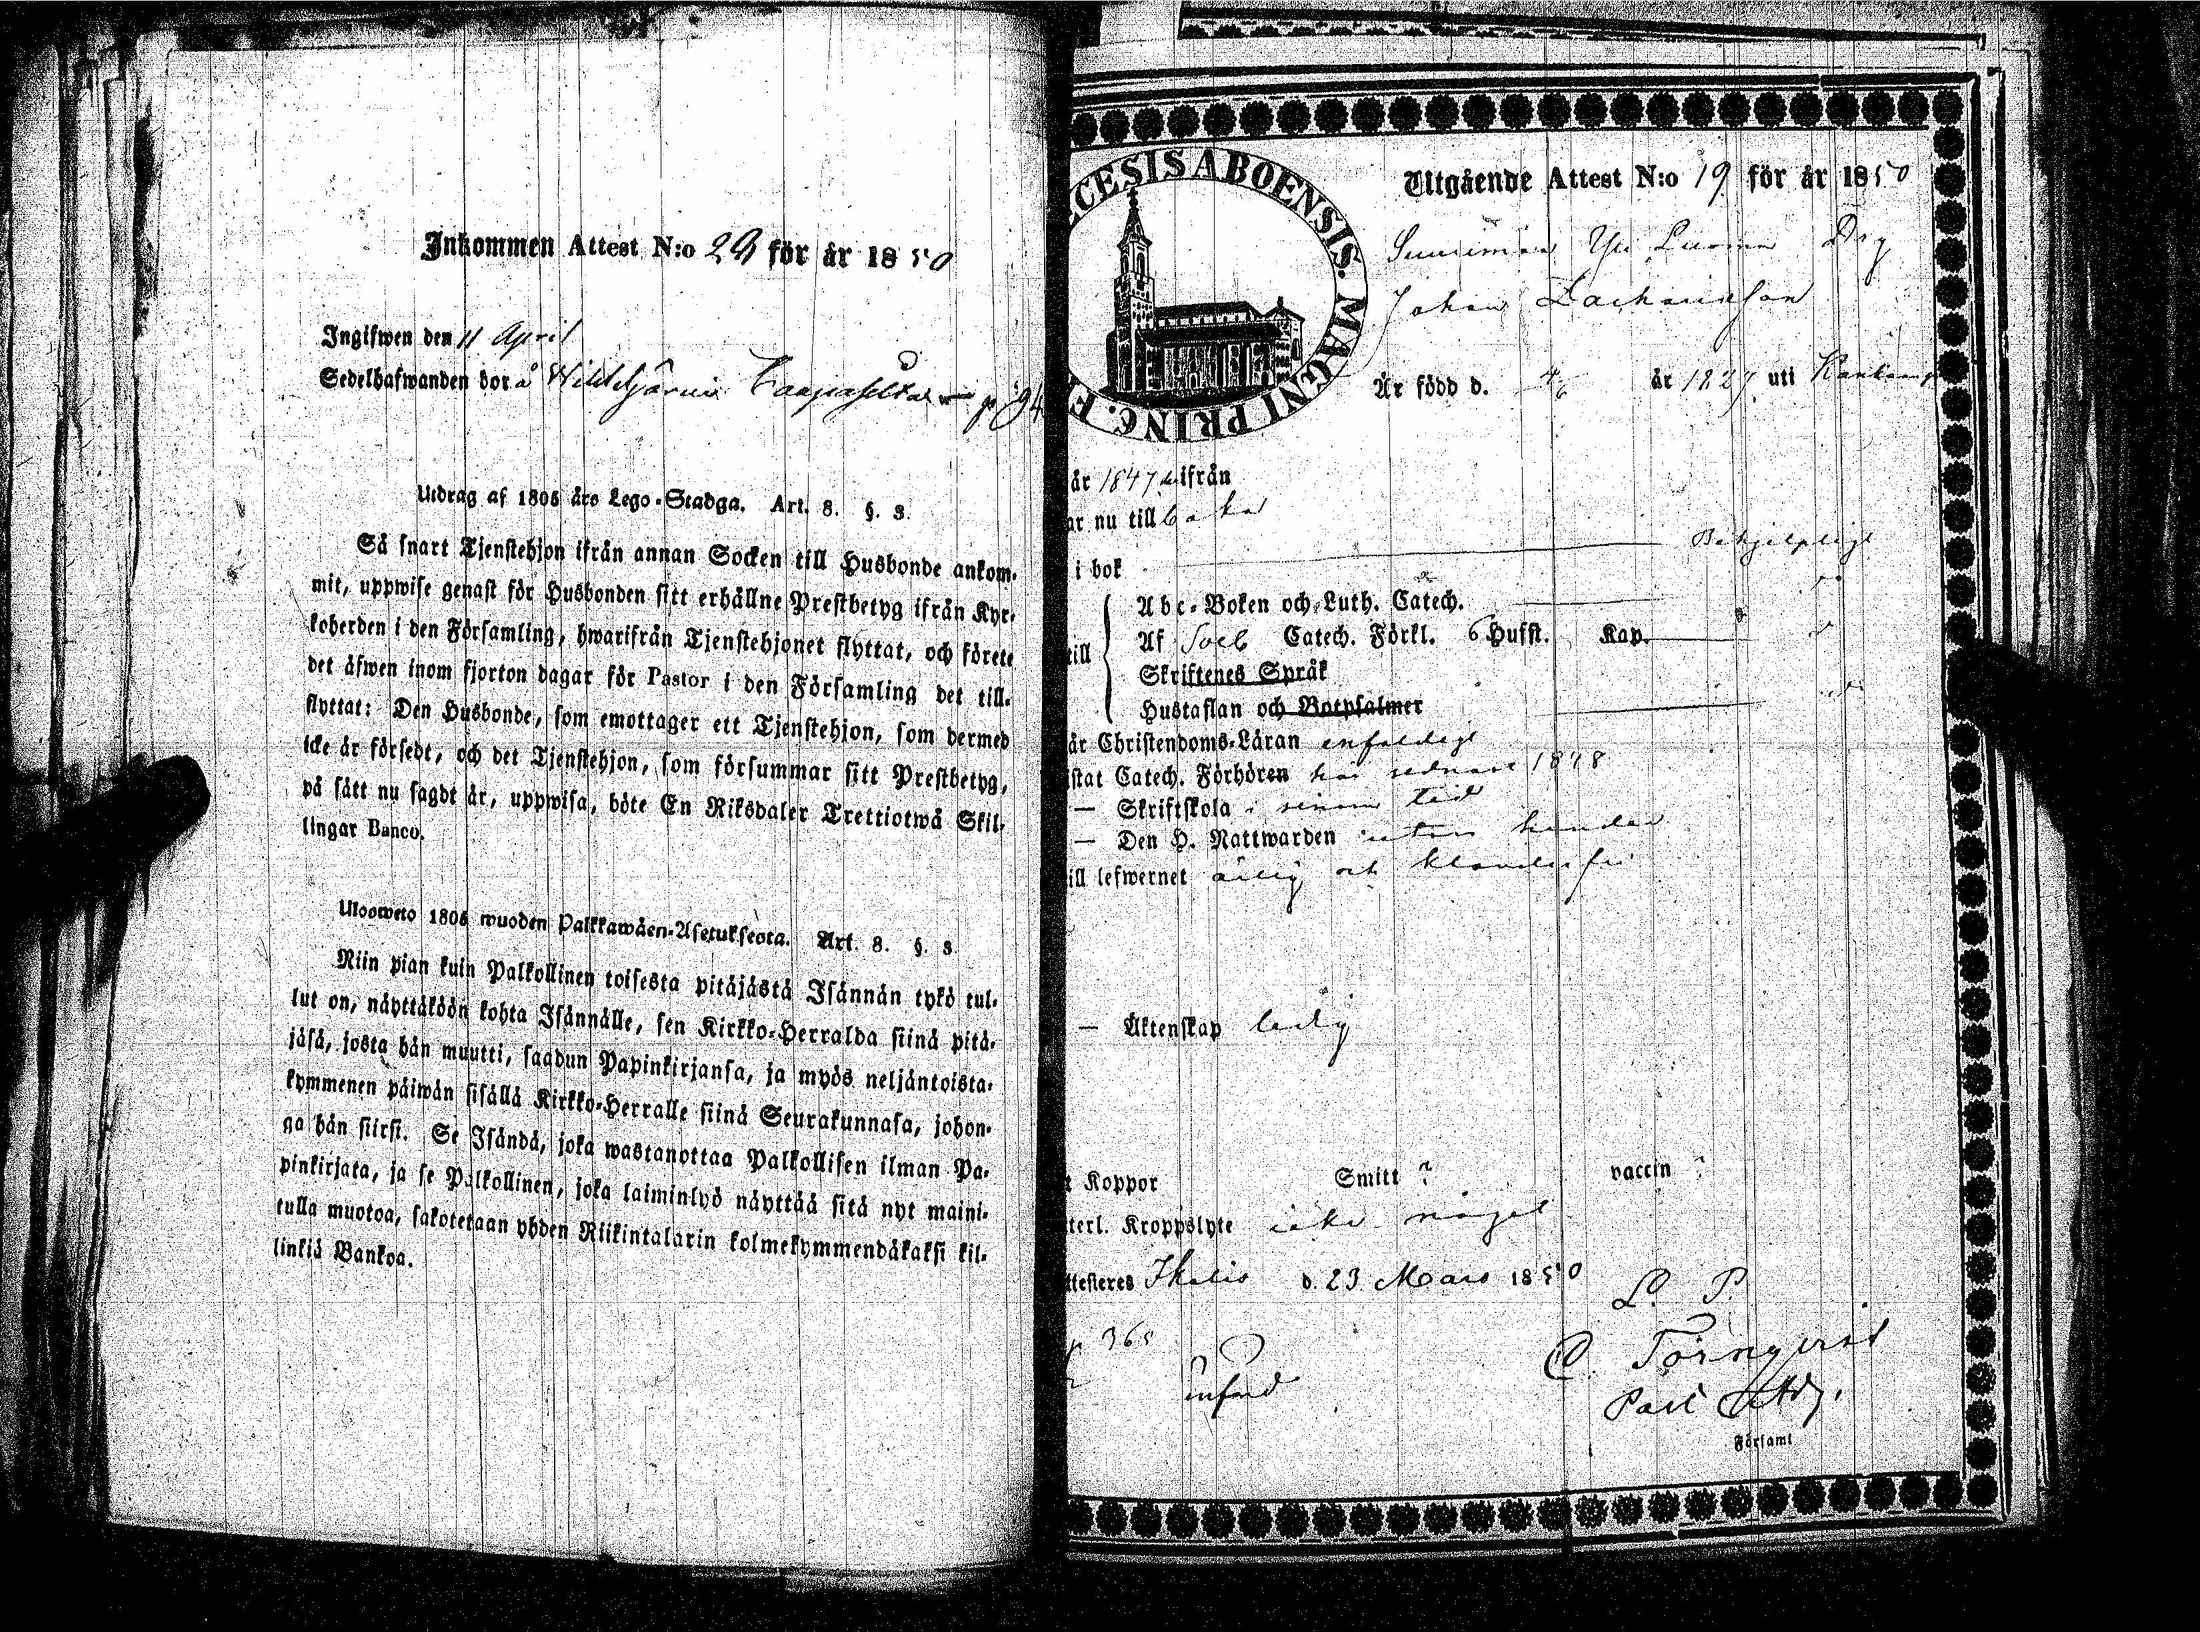 Inkommen Attest N:o 29 för år 1850
Ingifwen den 11 April
Sedelhafwanden bor å
Utdrag af 1805 års Lego-Stadga. Art. 8. §. 3.
Så snart Tjenstehjon ifrån annan Socken till Husbonde ankom-
mit, uppwise genast för Husbonden sitt erhållne Prestbetyg ifrån Kyr-
koherden i den Församling, hwarifrån Tjenstehjonet flyttat, och förete
det äfwen inom fjorton dagar för Pastor i den Församling det till-
flyttat: Den Husbonde, som emottager ett Tjenstehjon, som dermed
icke är försedt, och det Tjenstehjon, som försummar sitt Prestbetyg,
på sätt nu sagdt är, uppwisa, böte En Riksdaler Trettiotwå Skil-
lingar Banco.
Uloswеto 1805 wuoden Palkkawäen-Asetuksesta. Art. 8. §. 3
Niin pian kuin Palkollinen toisesta pitäjästä Isännän tykö tul-
lut on, näyttäköön kohta Isännälle, sen Kirkko-Herralda siinä pitä-
jäsä, josta hän muutti, saadun Papinkirjansa, ja myös neljäntoista-
kymmenen päiwän sisällä Kirkko-Herralle siinä Seurakunnasa, johon-
ga hän siirsi. Se Isändä, joka wastanottaa Palkollisen ilman Pa-
pinkirjata, ja se Palkollinen, joka laiminlyö näyttää sitä nyt maini-
tulla muotoa, sakotetaan yhden Riikintalarin kolmekymmendäkaksi kil-
linkiä Bankoa.
CESIS ABOENSIS. MAGNI PRINC. F
Utgående Attest N:o 19 för år 1850
Johan Zachariasson
Är född d. 4/6 år 1827 uti
år 1847 ifrån
ar nu tillbaka
i bok Behjelpligt
Abc-Boken och Luth. Catech.
till Af Soeb Catech. Förkl. 6 Hufst. Kap.
Skriftenes Språk
Hustaflan och Botpsalmer
är Christendoms-Läran enfaldigt
istat Catech. Förhören här sednast 1848
— Skriftskola i sinom tid
— Den H. Nattwarden utan hinder
ill lefwernet ärlig och klanderfri
— Äktenskap ledig
t Koppor Smitt ? vaccin ?
terl. Kroppslyte icke något
ttesteres Ikalis d. 23 Mars 1850
L. P.
365
införd
C. Törnqvist
Past Adj.
Församl